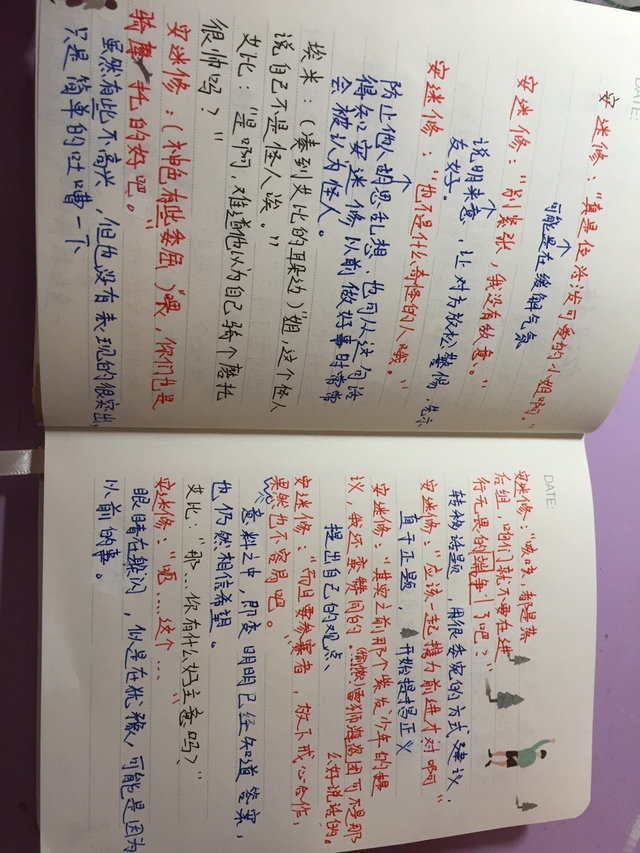 DATE:
安迷修："真是位活泼可爱的小姐啊。"
↑
可能是在缓解气氛
安迷修："别紧张，我没有敌意。"
↑
说明来意，让对方放松警惕，表示
友好。
安迷修："也不是什么奇怪的人哦。"
↑
防止他人胡思乱想，也可从这句话
得知安迷修以前做好事时常常
会被认为怪人。
埃米：（凑到艾比的耳朵边）"姐，这个怪人
说自己不是怪人诶。"
艾比："是啊，难道他以为自己骑个磨托
很帅吗？"
安迷修：（神色有些委屈）"喂，你们也是
骑摩托的好吧。"
虽然有些不高兴，但也没有表现的很突出，
只是简单的吐嘈一下
DATE:
安迷修："咳咳，都是落
后组，咱们就不要在进
行无畏的战争了吧？"
转移话题，用很委宛的方式建议，
安迷修："应该一起携力前进才对啊"
直于正题，开始提揭正义
安迷修："其实之前那个紫发少年的提
议，我还蛮赞同的……（惭愧）雷狮海盗团可不是那
么好说话的。
提出自己的观点、
安迷修："而且要参赛者，放下戒心合作，
果然也不容易吧。"
意料之中，即变明明已经知道答案，
也仍然相信希望。
艾比："那…你有什么好主意吗？"
安迷修："嗯……这个…"
眼睛在躲闪，似是在犹豫，可能是因为
以前的事。